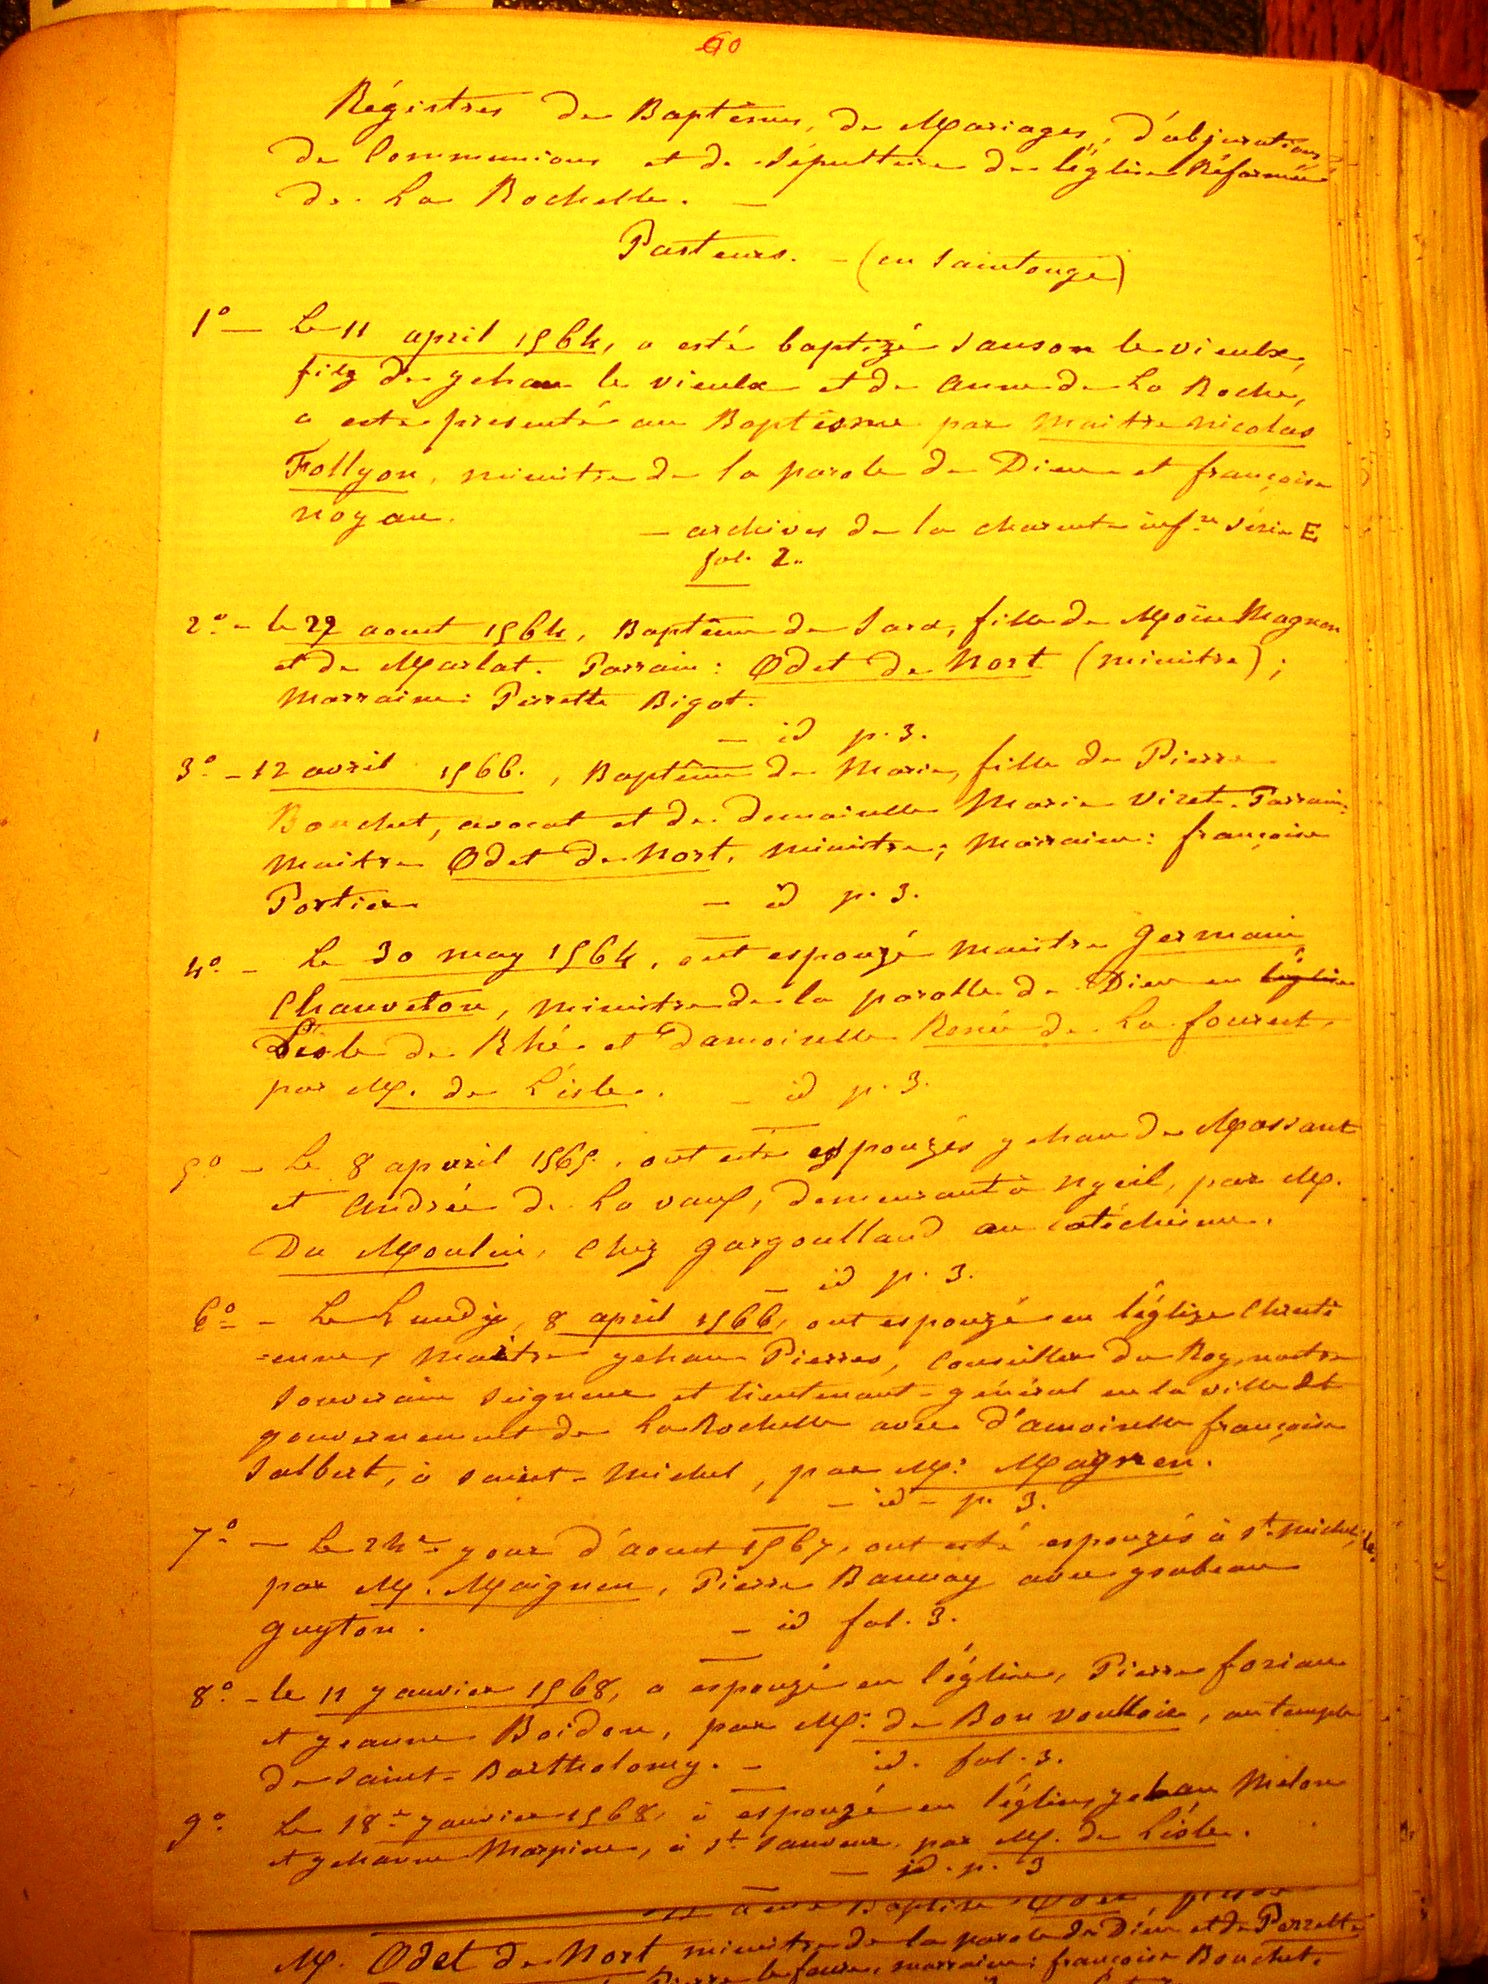 60
Régistres de Baptêmes, de Mariages, d'abjurations
de Communions et de Sépulture de l'église Réformée
de La Rochelle. —
Pasteurs. — (en Saintonge)
1° — Le 11 april 1564, a esté baptizé Sanson le vieulx,
filz de yehan le vieulx et de Anne de La Roche,
a esté présenté au Baptesme par Maitre Nicolas
Follyon, ministre de la parole de Dieu et françoise
noyau.
— archives de la charente infre Série E
fol. 2.
2° - le 22 aout 1564, Baptême de Sara, fille de Moïse Magnon
et de Marlat. Parrain : Odet de Nort (ministre) ;
Marraine : Perrette Bigot.
— id p. 3.
3° - 12 avril 1566. , Baptême de Marie, fille de Pierre
Bouchet, avocat et de demoiselle Marie Viret. Parrain :
Maitre Odet de Nort, ministre ; Marraine : françoise
Portier
— id p. 3.
4° - Le 30 may 1564, ont espouzé maistre Germain
Chauveton, ministre de la parolle de Dieu en l'église
L'isle de Rhé et Damoiselle Renée de La fourest,
par M. de L'isle. — id p. 3.
5° - Le 8 apvril 1565. , ont esté espouzés yehan de Massant
et Andrée de La vau, demeurant à Nyeil, par M.
Du Moulin, Chez gargoulland au catéchisme.
— id p. 3.
6° - Le Lundy, 8 april 1566, ont espouzé en l'églize Chresti
-enne, Maitre yehan Pierres, Conseiller du Roy, nostre
Souverain Seigneur et lieutenant-général en la ville et
gouvernement de La Rochelle avec d'amoiselle françoise
Salbert, à saint-Michel, par M. Magnen.
— id — p. 3.
7° — Le 24e your d'aout 1567, ont esté espouzés à St Michel,
par M. Maignen, Pierre Bauvay avec ysabeau
guyton. — id fol. 3.
8° - le 11 yanvier 1568, a espouzé en l'église, Pierre forian
et yeanne Boidon, par M. de Bon voulloir, au temple
de Saint-Bartholomy. — id. fol. 3.
9° Le 18e yanvier 1568, à espouzé en l'église, yehan Melon
et yehanne Marpine, à St Sauveur, par M. de L'isle.
— id. p. 3
M. Odet de Nort ministre de la parole de Dieu et de Perrette
Pierre lefeure, marraine : françoise Bouchet.